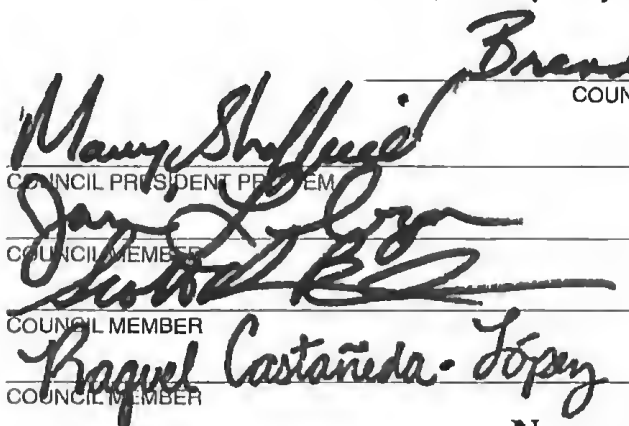 Bren
COUN
Mary Sheffield
COUNCIL PRESIDENT PRO TEM
COUNCIL MEMBER
Scott
COUNCIL MEMBER
Raquel Castañeda-López
COUNCIL MEMBER
N